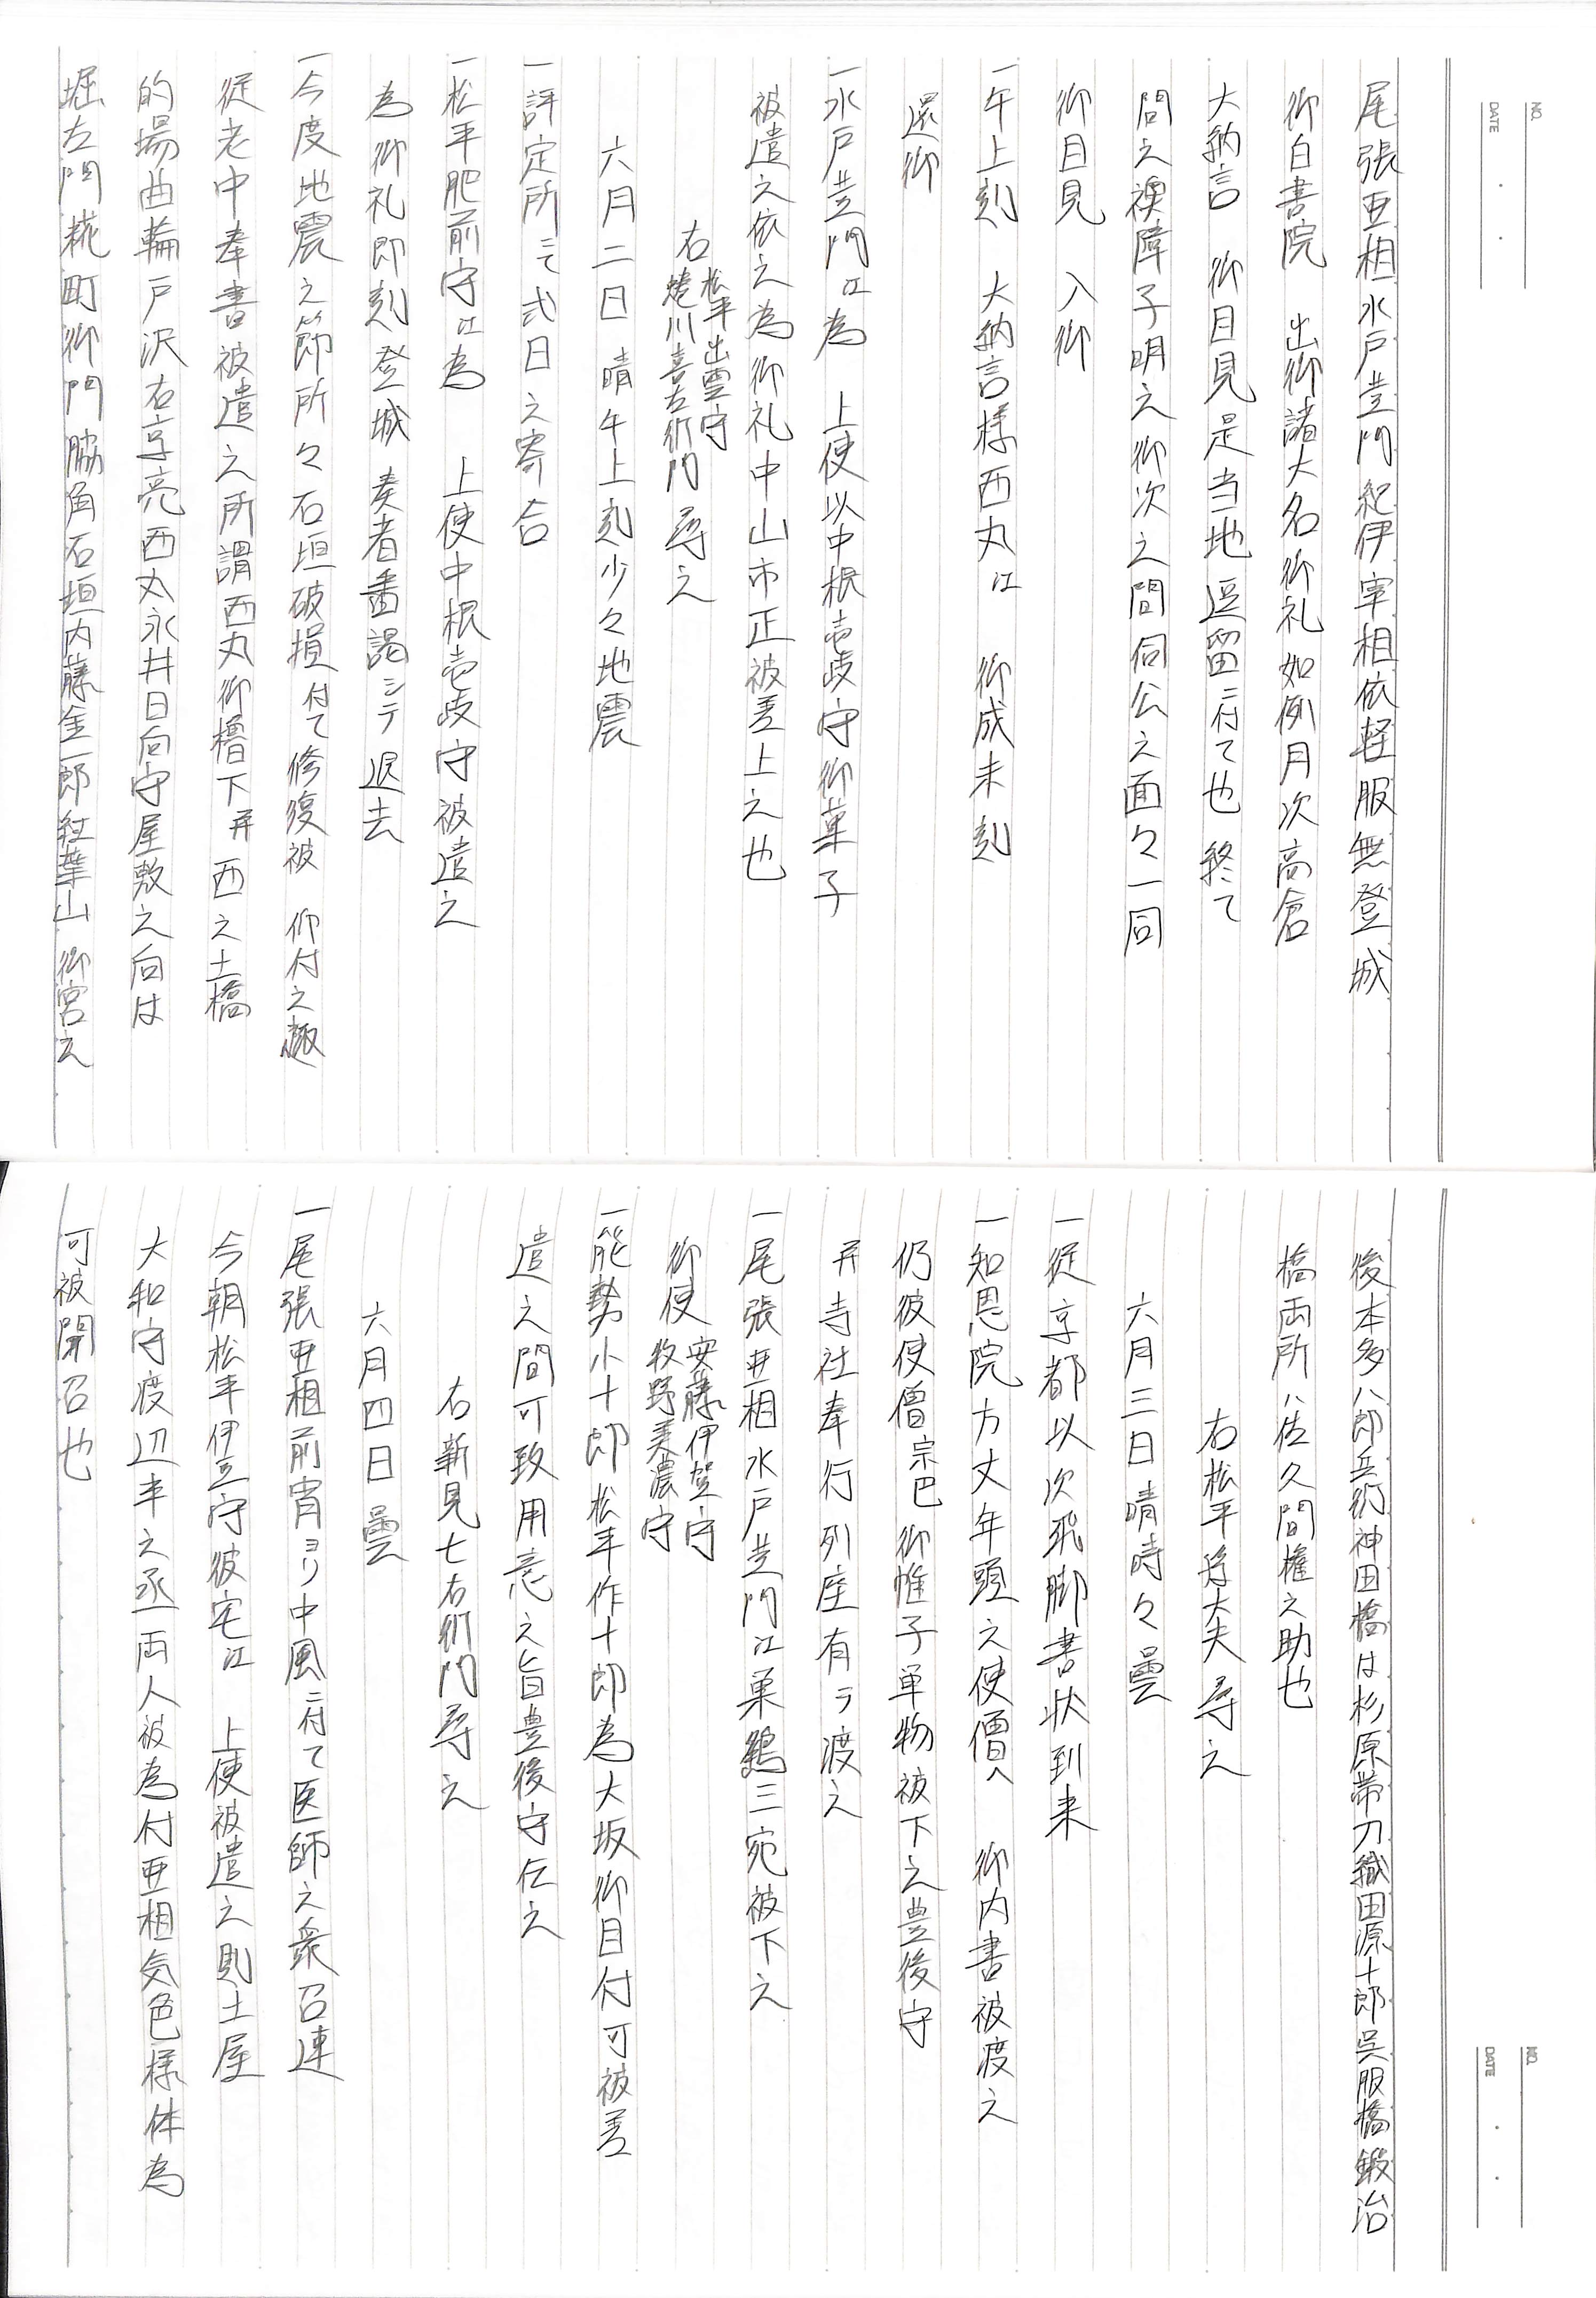 NO.
DATE
尾張亜相水戸黄門紀伊宰相依軽服無登城
御白書院　出御諸大名御礼如例月次高倉
大納言　御目見是当地逗留ニ付て也　終て
間之襖障子明之御次之間伺公之面々一同
御目見　入御
一午上刻　大納言様西丸江　御成未刻
還御
一水戸黄門江為　上使以中根壱岐守御菓子
被遣之依之為御礼中山市正被差上之也
右 松平出雲守 蜷川喜左衛門 尋之
六月二日　晴午上刻少々地震
一評定所ニて式日之寄合
一松平肥前守江為　上使中根壱岐守被遣之
為御礼即刻登城　奏者番謁シテ退去
一今度地震之節所々石垣破損付て修復被　仰付之趣
従老中奉書被遣之所謂西丸御櫓下并西之土橋
的場曲輪戸沢右京亮西丸永井日向守屋敷之向は
堀左門糀町御門脇角石垣内藤金一郎紅葉山御宮之
NO.
DATE
後本多八郎兵衛神田橋は杉原帯刀織田源十郎呉服橋鍛冶
橋両所ハ佐久間権之助也
右松平将大夫尋之
六月三日　晴時々曇
一従京都以次飛脚書状到来
一知恩院方丈年頭之使僧へ　御内書被渡之
仍彼使僧宗巴御帷子単物被下之豊後守
并寺社奉行列座有ヲ渡之
一尾張亜相水戸黄門江巣鶴三宛被下之
御使 安藤伊賀守 牧野美濃守
一能勢小十郎松平作十郎為大坂御目付可被差
遣之間可致用意之旨豊後守伝之
右新見七右衛門尋之
六月四日　曇
一尾張亜相前宵ヨリ中風ニ付て医師之衆召連
今朝松平伊豆守彼宅江　上使被遣之則土屋
大和守渡辺半之丞両人被為付亜相気色様体為
可被聞召也